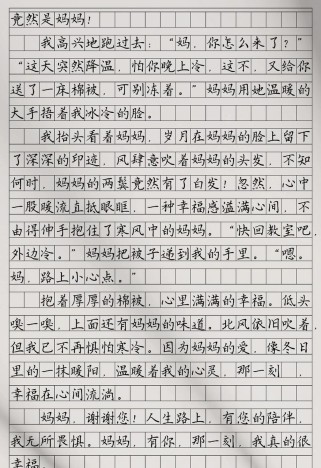 竟然是妈妈！
我高兴地跑过去：“妈，你怎么来了？”
“这天突然降温，怕你晚上冷，这不，又给你
送了一床棉被，可别冻着。”妈妈用她温暖的
大手捂着我冰冷的脸。
我抬头看着妈妈，岁月在妈妈的脸上留下
了深深的印迹，风肆意吹着妈妈的头发，不知
何时，妈妈的两鬓竟然有了白发！忽然，心中
一股暖流直抵眼眶，一种幸福感溢满心间，不
由得伸手抱住了寒风中的妈妈。“快回教室吧，
外边冷。”妈妈把被子递到我的手里。“嗯。
妈，路上小心点。”
抱着厚厚的棉被，心里满满的幸福。低头
嗅一嗅，上面还有妈妈的味道。北风依旧吹着，
但我已不再惧怕寒冷。因为妈妈的爱，像冬日
里的一抹暖阳，温暖着我的心灵，那一刻，
幸福在心间流淌。
妈妈，谢谢您！人生路上，有您的陪伴，
我无所畏惧。妈妈，有你，那一刻，我真的很
幸福。